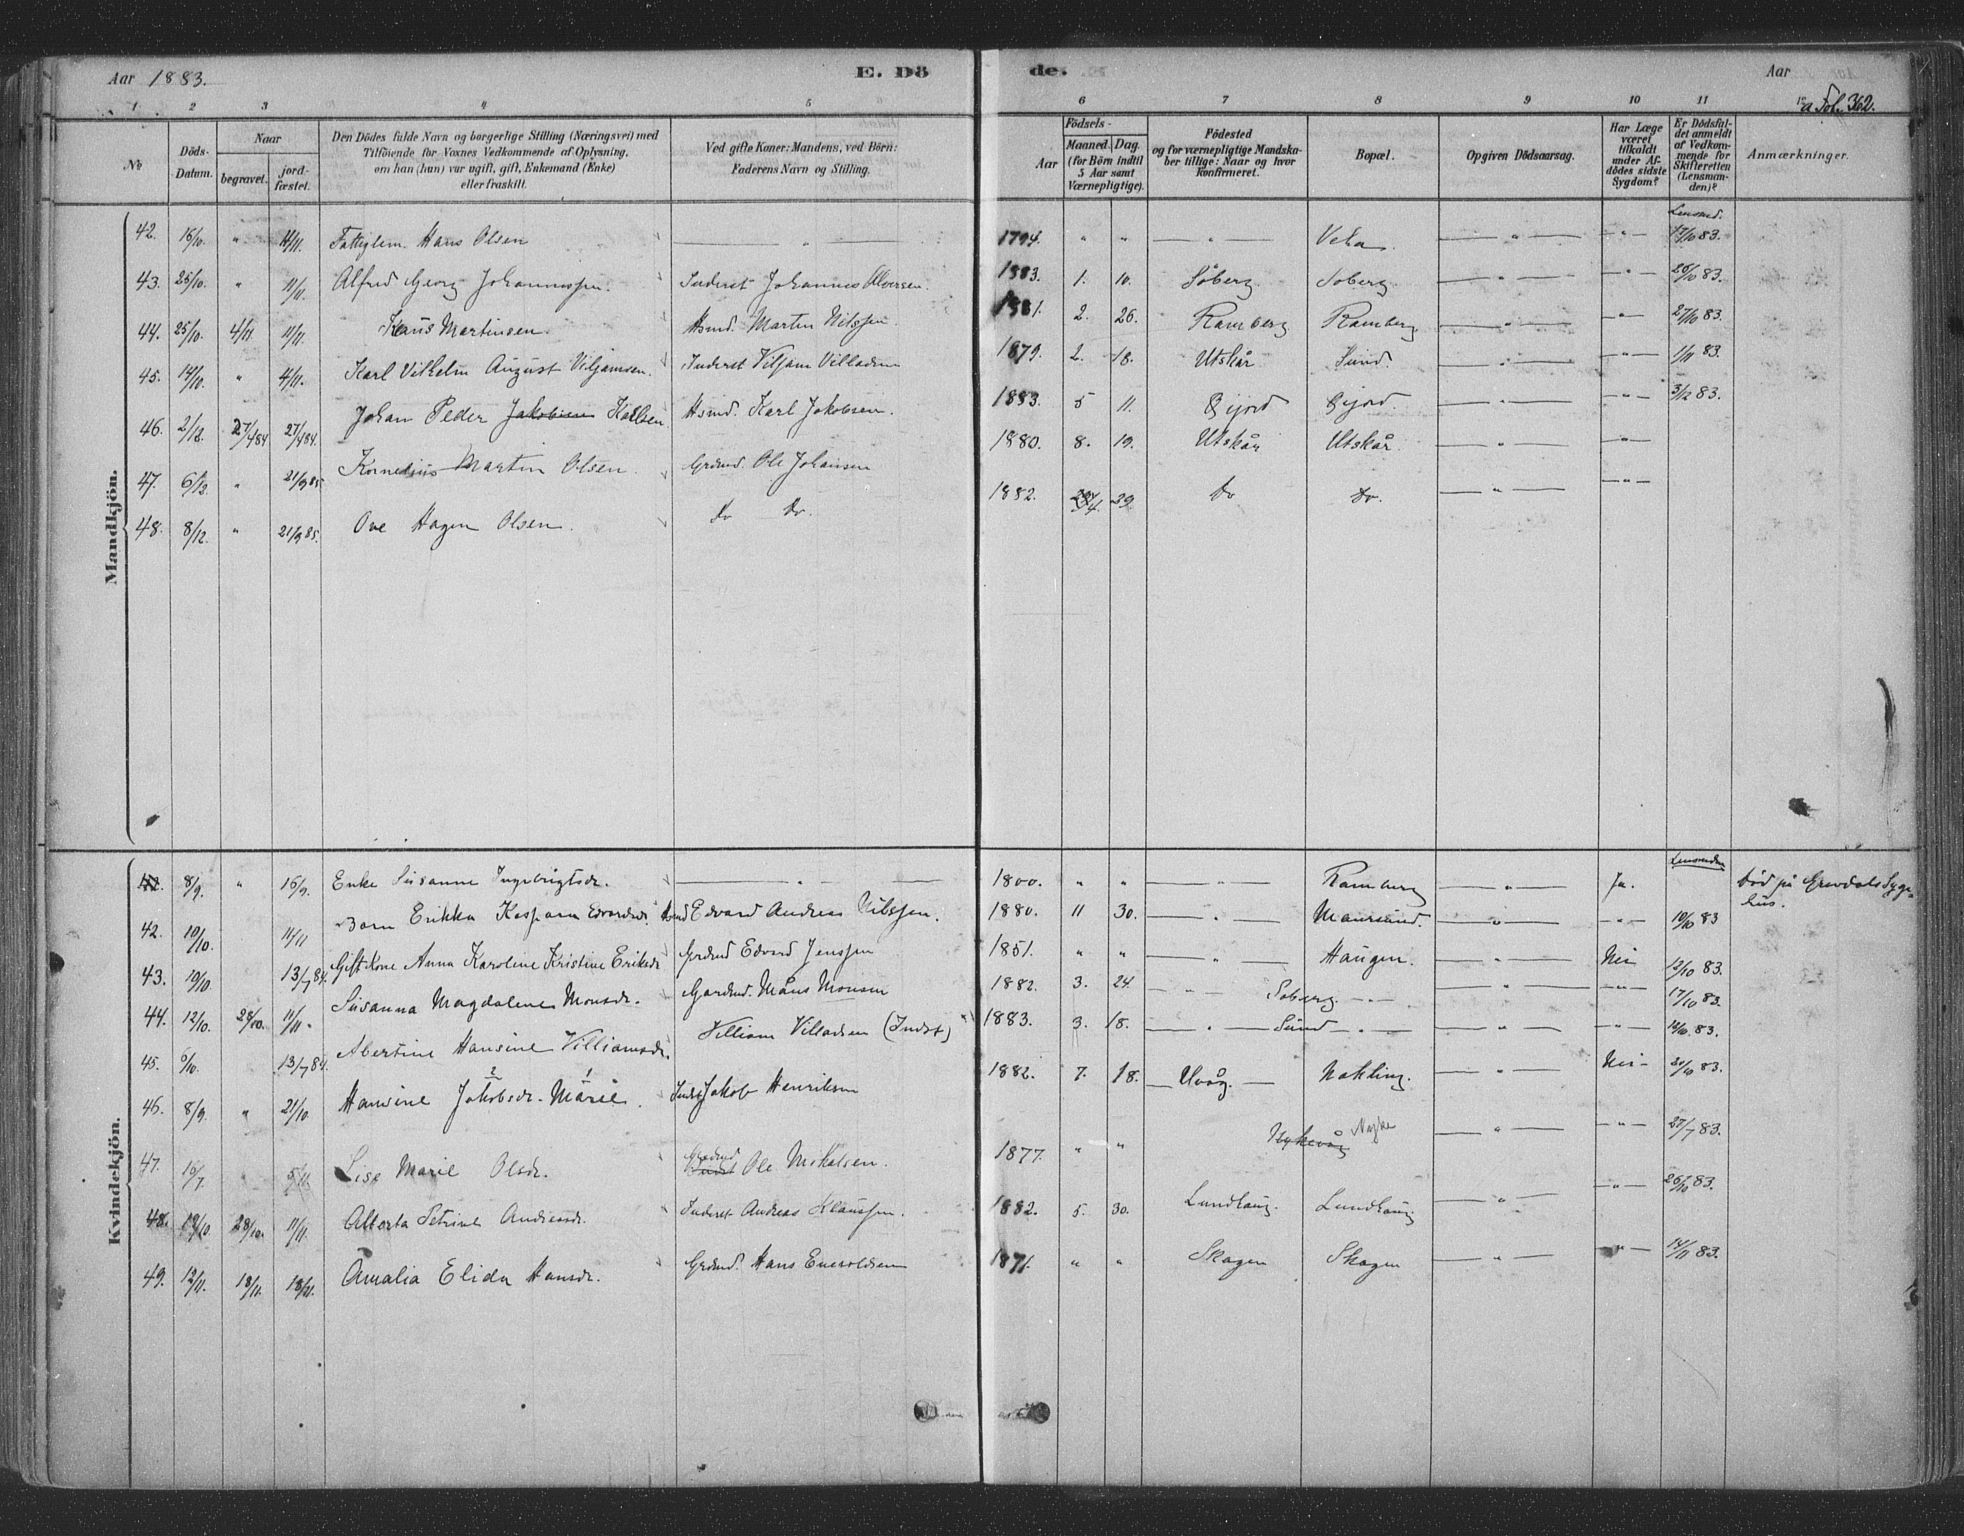 Aar 1883. E. Dö
de. Aar
1 2 3 4 5 6 7 8 9 10 11 12
a Fol. 362.
№ Döds-Datum. Naar begravet. jord-fæstet. Den Dödes fulde Navn og borgerlige Stilling (Næringsvei) med Tilföiende for Voxnes Vedkommende af Oplysning, om han (hun) var ugift, gift, Enkemand (Enke) eller fraskilt. Ved gifte Koner: Mandens, ved Börn: Faderens Navn og Stilling.
Födsels- Aar Maaned. Dag. (for Börn indtil 5 Aar samt Værnepligtige). Födested og for værnepligtige Mandska-ber tillige: Naar og hvor Konfirmeret. Bopæl. Opgiven Dödsaarsag. Har Læge været tilkaldt under Af-dödes sidste Sygdom? Er Dödsfal-det anmeldt af Vedkom-mende for Skifteretten (Lensman-den)? Anmærkninger.
Mandkjön.
42. 16/10. " 11/11. Fattiglem Hans Olsen — " — 1794. " " — " — — " — — " — Lensmd. 17/10 83.
43. 25/10. " 11/11. Alfred Georg Johannssen. Inderst Johannes Alversen. 1883. 1. 10. Söberg. Soberg — " — — " — 26/10 83.
44. 25/10. 4/11 11/11. Klaus Martinsen. Hsmd. Marten Nilssen 1881. 2. 26. Ramberg Ramberg — " — — " — 27/10 83.
45. 14/10. " 4/11. Karl Vilhelm August Viljamsen. Inderst Viljam Villadsen 1879. 2. 18. Utskår Sund. — " — — " — 1/11 83.
46. 2/12. 27/4 84 27/4 84. Johan Peder Jakobsen Karlsen Hsmd. Karl Jakobsen. 1883. 5 11. Qijord Qijord. — " — — " — 3/12 83.
47. 6/12. " 21/9 85 Kornelius Martin Olsen. Grdmd. Ole Johansen 1880. 8. 19. Utskår Utskår. — " — — " —
48. 8/12. " 21/9 85. Ove Hagen Olsen. do do. 1882. 4. 29. do do. — " — — " —
Kvindekjön.
8/9. " 16/9. Enke Susanne Ingebrigtsdr. — " — 1800. " " — " — Ramberg — " — Ja. Lensmden död på Grevdals Syge-hus.
42. 10/10. 11/11 Barn Erikka Kaspara Edvardsdr. Hsmd Edvard Andreas Nilssen. 1880. 11 30. — " — Maursund. — " — — " — 19/10 83
43. 10/10. 13/7 84. Gift Kone Anna Karoline Kristine Eriksdr Grdmd Edvard Jenssen 1851. " " — " — Haugen. — " — Nei 12/10 83.
44. 12/10. 28/10. 11/11. Susanna Magdalene Monsdr. Gardmd. Måns Monsen 1882. 3. 24. — " — Soberg. — " — — " — 17/10 83.
45. 6/10. 13/7 84. Abertine Hansine Villiamsdr. Villiam Villadsen (Indst) 1883. 3. 18. — " — Sund — " — — " — — " — 14/10 83.
46. 8/9. " 21/10. Hansine Jakobsdr. Marie. Indst Jakob Henriksen 1882. 7. 18. — Uvåg. — Nakling. — " — Nei — 20/10 83.
47. 16/7. " Lise Marie Olsdr. Grdmd Indst Ole Mikalsen. 1877. " " Nykevåg Nyke — " — — " — 23/7 83.
48. 19/10. 28/10. 11/11. Alberta Petrine Andreasdr. Inderst Andreas Klaussen. 1882. 5. 30. Lundhaug. Lundhaug — " — — " — 26/10 83.
49. 12/11. 18/11. 18/11. Amalia Elida Hansdr. Grdmd. Hans Enevoldsen 1871. " " Skogen Skogen — " — — " — 14/11 83.